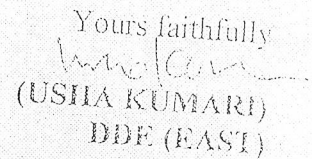 Yours faithfully
(USHA KUMARI)
DDE (EAST)